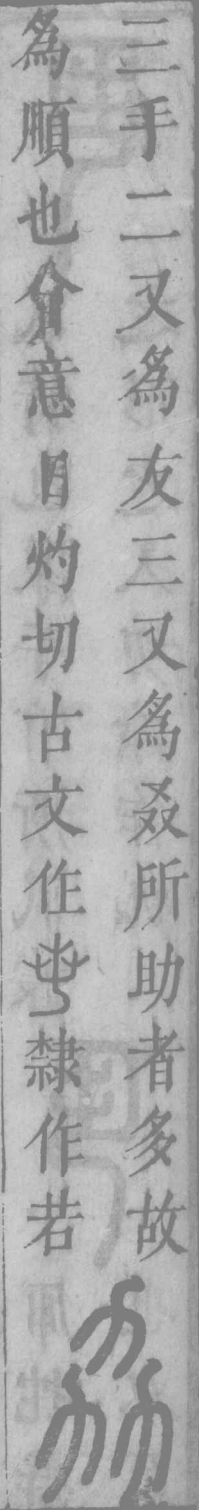 三手二又為友三又為叒所助者多故
為順也會意日灼切古文作𠭥隸作若